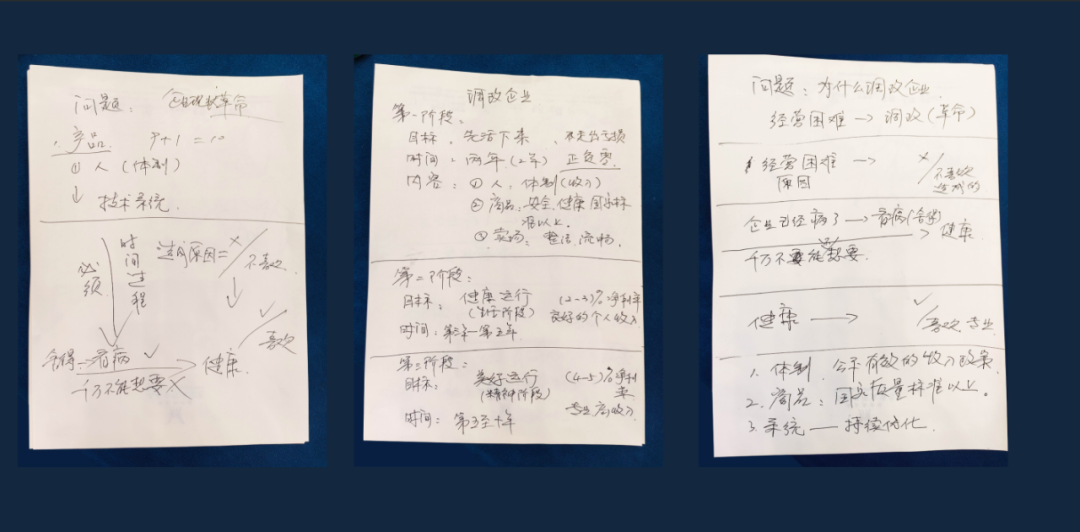 问题：企业现状革命
1. 产品 9+1=10
① 人（体制）
↓ 技术系统
必须
时间过程
造成原因= × / 不喜欢
舍得→看病 ✓ → 健康 ✓ / 喜欢
千万不能想要 ×
调改企业
第一阶段：
目标：先活下来
时间：两年（2年） 正负零
内容：① 人：体制（收入）
② 商品：安全、健康国家标
准以上。
③ 卖场：整洁、流畅。
第二阶段：
目标：健康运行 (2-3)%净利率
（生活阶段） 良好的个人收入
时间：第三年—第五年
第三阶段：
目标：美好运行 (4-5)%净利
（精神阶段） 率
时间：第五至十年 专业高收入
问题：为什么调改企业
经营困难→调改（革命）
经营困难→ × / 不喜欢
原因 造成的
企业已经病了→看病（舍得）
→健康
千万不能想要.
健康→ ✓ / 喜欢 专业
1. 体制：公平有效的收入政策.
2. 商品：国家质量标准以上。
3 系统——持续优化.